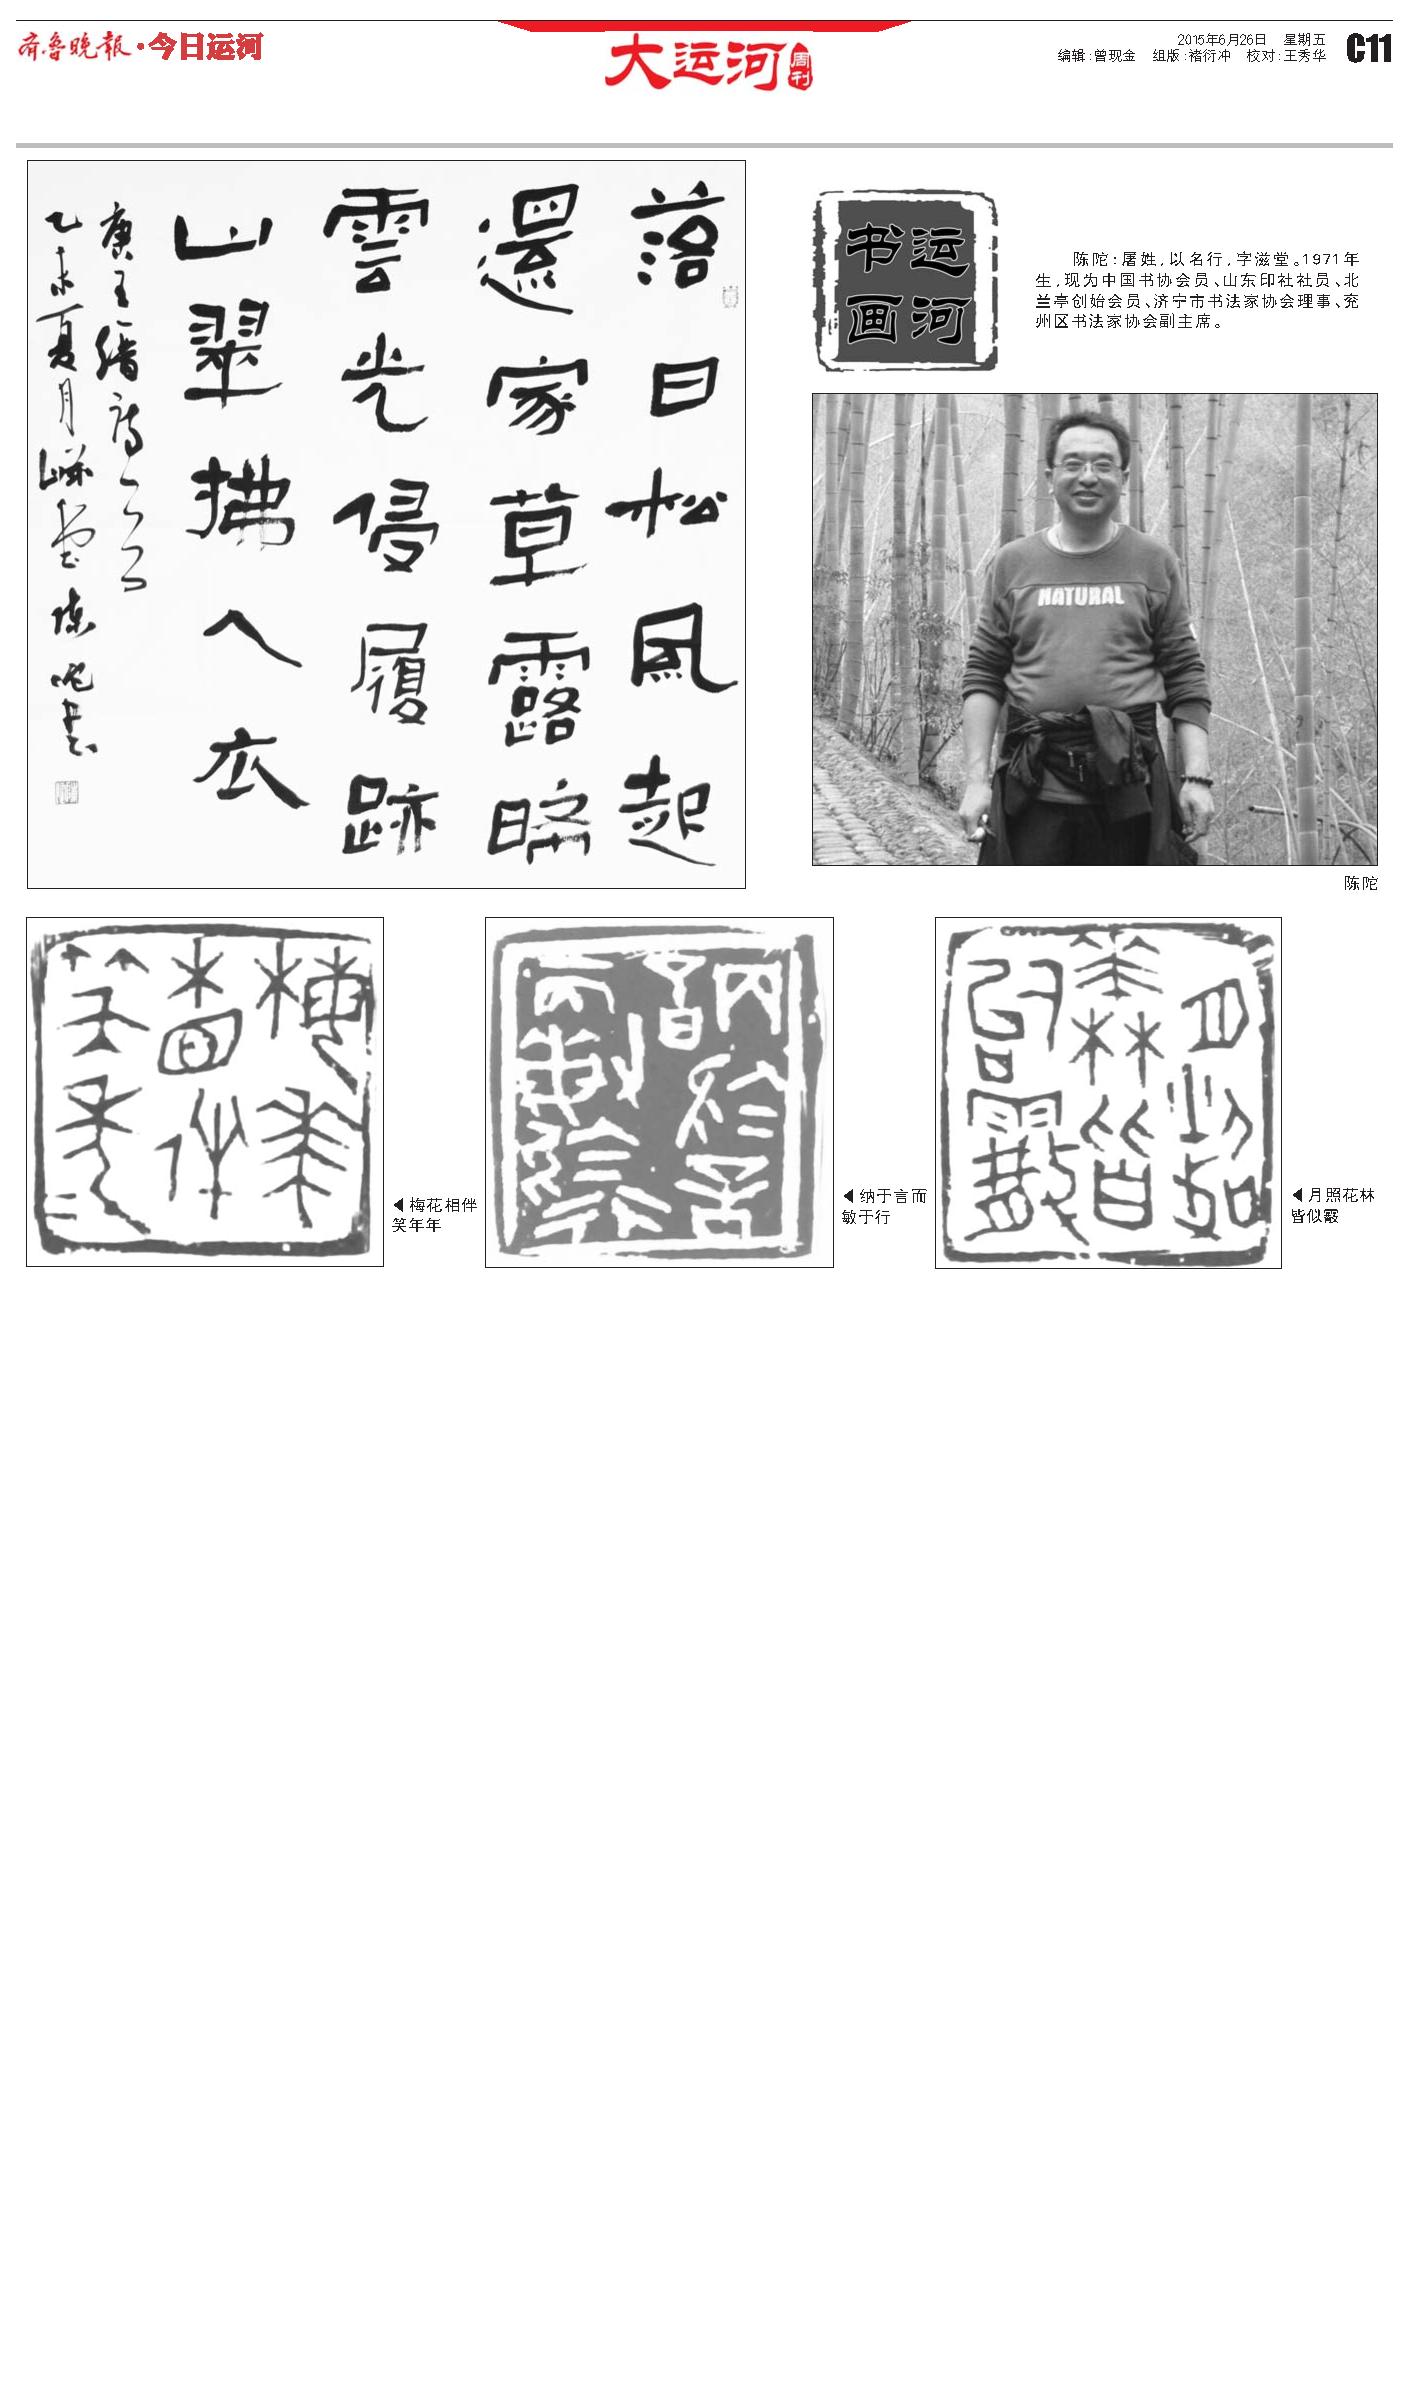 齐鲁晚报·今日运河
大运河
周刊
2015年6月26日 星期五
编辑:曾现金 组版:褚衍冲 校对:王秀华
C11
落日松風起
還家草露晞
雲光侵履跡
山翠拂人衣
乙未夏月
陈陀书
运河
书画
陈陀:屠姓,以名行,字滋堂。1971年
生,现为中国书协会员、山东印社社员、北
兰亭创始会员、济宁市书法家协会理事、兖
州区书法家协会副主席。
NATURAL
陈陀
◀梅花相伴
笑年年
◀纳于言而
敏于行
◀月照花林
皆似霰